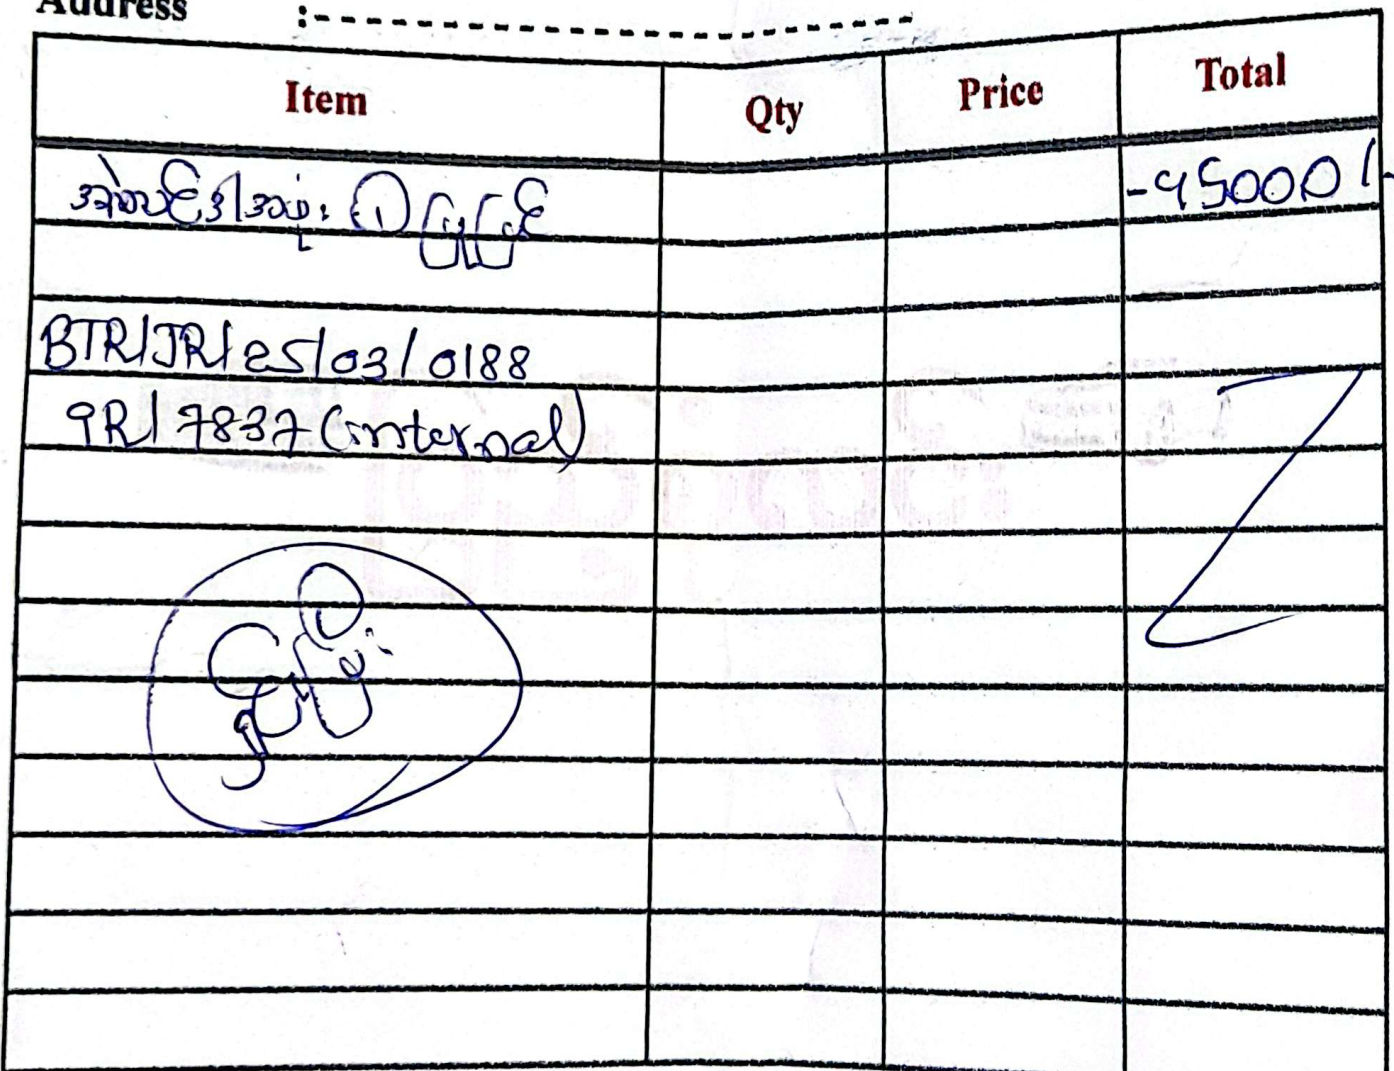 Address :
Item Qty Price Total
ပြုပြင် -95000/-
BTR/JR/25/03/0188
9R/7837 (internal)